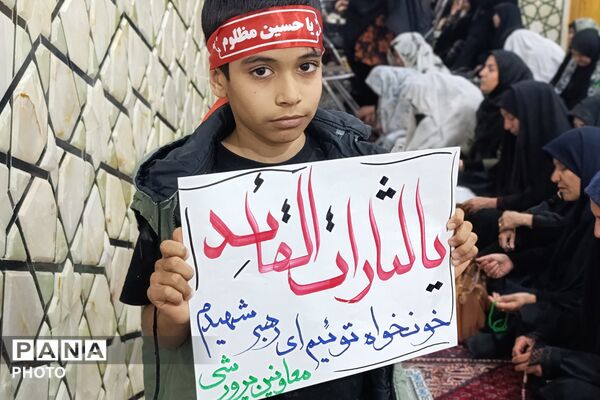 یا حسین مظلوم
یا لثارات القائد
خونخواه توئیم ای رهبر شهیدم
معاونین پرورشی
PANA
PHOTO